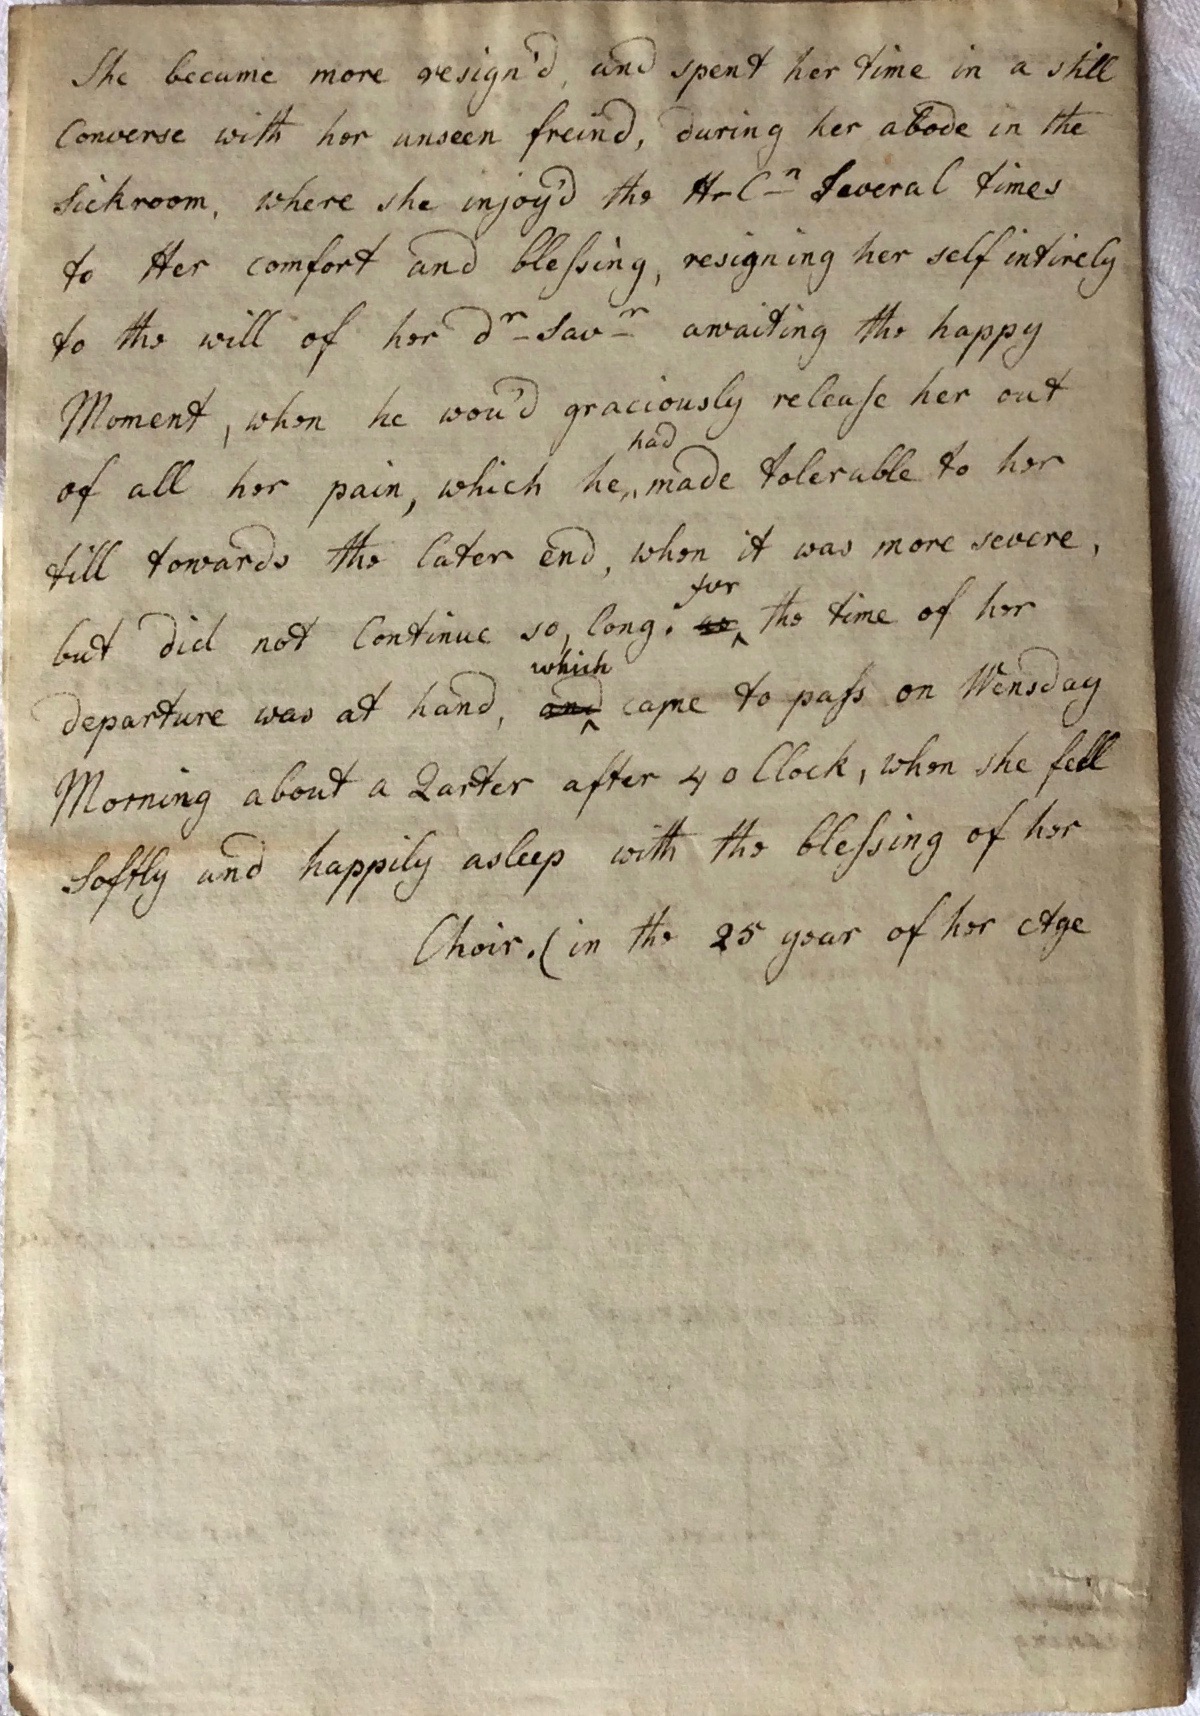 She became more resign'd, and spent her time in a still
Converse with her unseen freind, during her abode in the
Sickroom, where she injoy'd the H- Cn Several times
to Her comfort and bleſsing, resigning her self intirely
to the will of her dr Savr awaiting the happy
Moment, when he wou'd graciously releaſe her out
had
of all her pain, which he made tolerable to her
till towards the later end, when it was more severe,
for
but did not Continue so, long. the time of her
which
departure was at hand, and came to paſs on Wensday
Morning about a Qarter after 4 o Clock, when she fell
Softly and happily asleep with the bleſsing of her
Choir. (in the 25 year of her Age